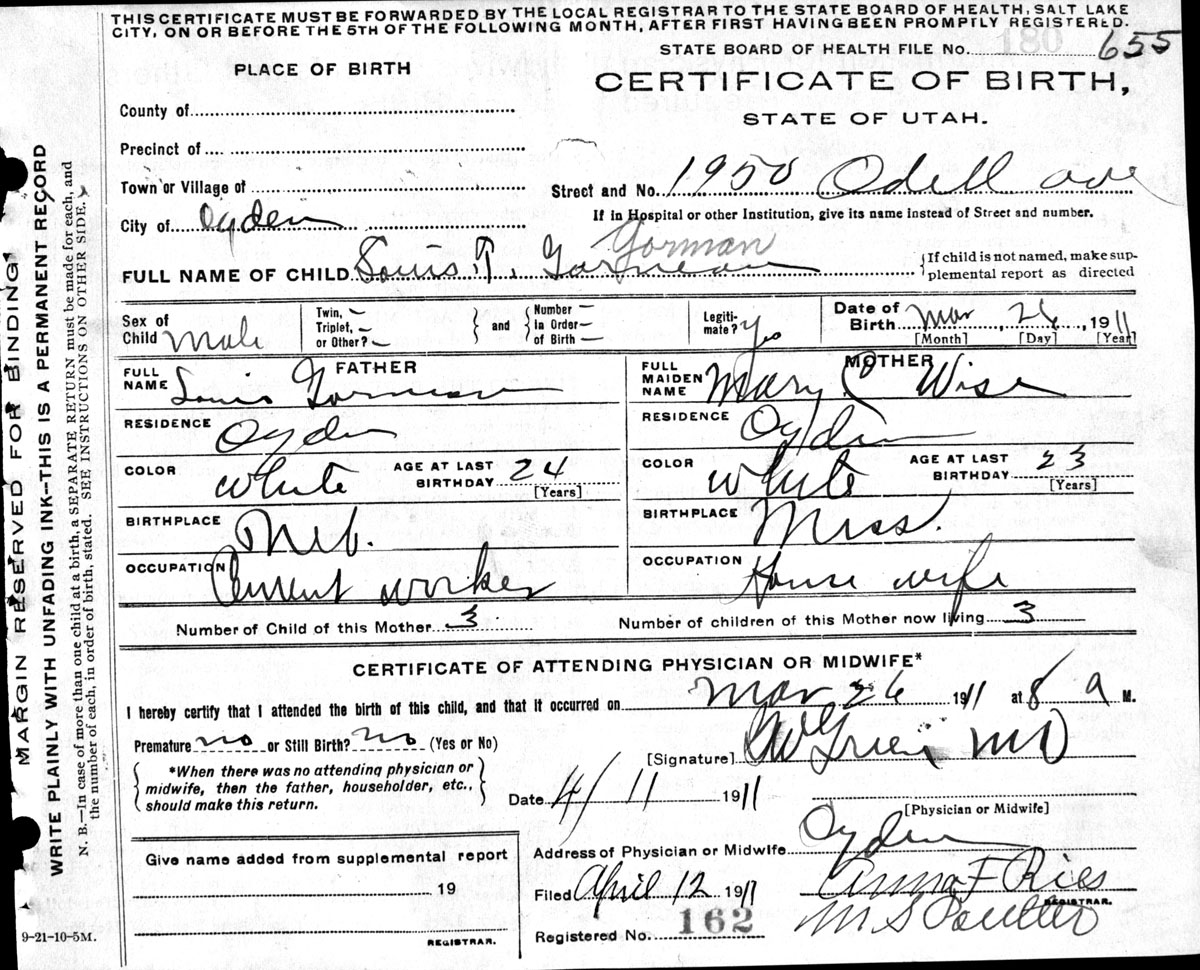 THIS CERTIFICATE MUST BE FORWARDED BY THE LOCAL REGISTRAR TO THE STATE BOARD OF HEALTH, SALT LAKE
CITY, ON OR BEFORE THE 5TH OF THE FOLLOWING MONTH, AFTER FIRST HAVING BEEN PROMPTLY REGISTERED.
STATE BOARD OF HEALTH FILE No. 180 655
PLACE OF BIRTH
CERTIFICATE OF BIRTH,
STATE OF UTAH.
County of
Precinct of
Town or Village of
Street and No. 1950 Odell ave
City of Ogden
If in Hospital or other Institution, give its name instead of Street and number.
Gorman
FULL NAME OF CHILD Louis T. Garneau
{If child is not named, make sup-
plemental report as directed
Sex of Child Male
Twin, —
Triplet, —
or Other? —
} and {
Number —
In Order —
of Birth —
Legiti-
mate? yes
Date of
Birth Mar, 26, 1911
[Month] [Day] [Year]
FATHER
FULL NAME Louis Gorman
MOTHER
FULL MAIDEN NAME Mary C Wise
RESIDENCE Ogden
RESIDENCE Ogden
COLOR White AGE AT LAST BIRTHDAY 24 [Years]
COLOR White AGE AT LAST BIRTHDAY 23 [Years]
BIRTHPLACE Neb.
BIRTHPLACE Miss.
OCCUPATION Cement worker
OCCUPATION House wife
Number of Child of this Mother 3
Number of children of this Mother now living 3
CERTIFICATE OF ATTENDING PHYSICIAN OR MIDWIFE*
I hereby certify that I attended the birth of this child, and that it occurred on Mar 26 1911 at 8 a M.
Premature no or Still Birth? no (Yes or No)
[Signature] MD
{ *When there was no attending physician or
midwife, then the father, householder, etc.,
should make this return. }
Date 4/11 1911
[Physician or Midwife]
Give name added from supplemental report
19
REGISTRAR.
Address of Physician or Midwife Ogden
Filed April 12 1911 Anna F Ries
REGISTRAR.
Registered No. 162 M S Poulter
9-21-10-5M.
MARGIN RESERVED FOR BINDING
WRITE PLAINLY WITH UNFADING INK—THIS IS A PERMANENT RECORD
N. B.—In case of more than one child at a birth, a SEPARATE RETURN must be made for each, and
the number of each, in order of birth, stated. SEE INSTRUCTIONS ON OTHER SIDE.